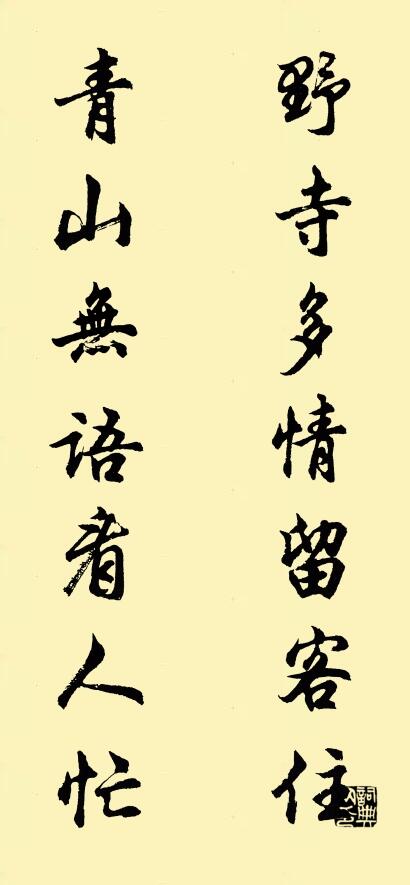 野寺多情留客住
青山無語看人忙